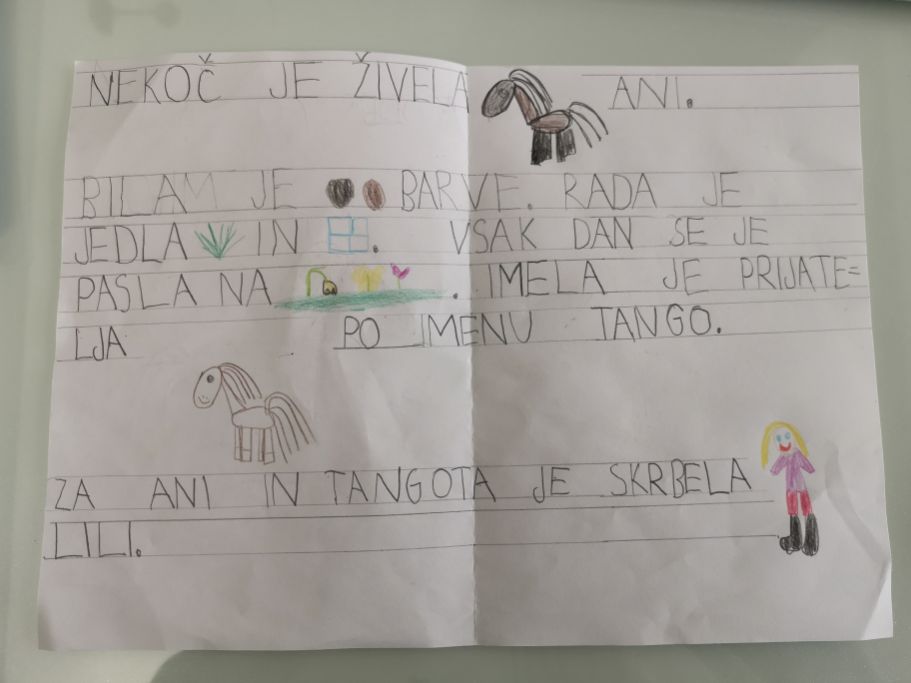 NEKOČ JE ŽIVELA ANI.
BILA JE BARVE. RADA JE
JEDLA IN . VSAK DAN SE JE
PASLA NA . IMELA JE PRIJATE=
LJA PO IMENU TANGO.
ZA ANI IN TANGOTA JE SKRBELA
LILI.